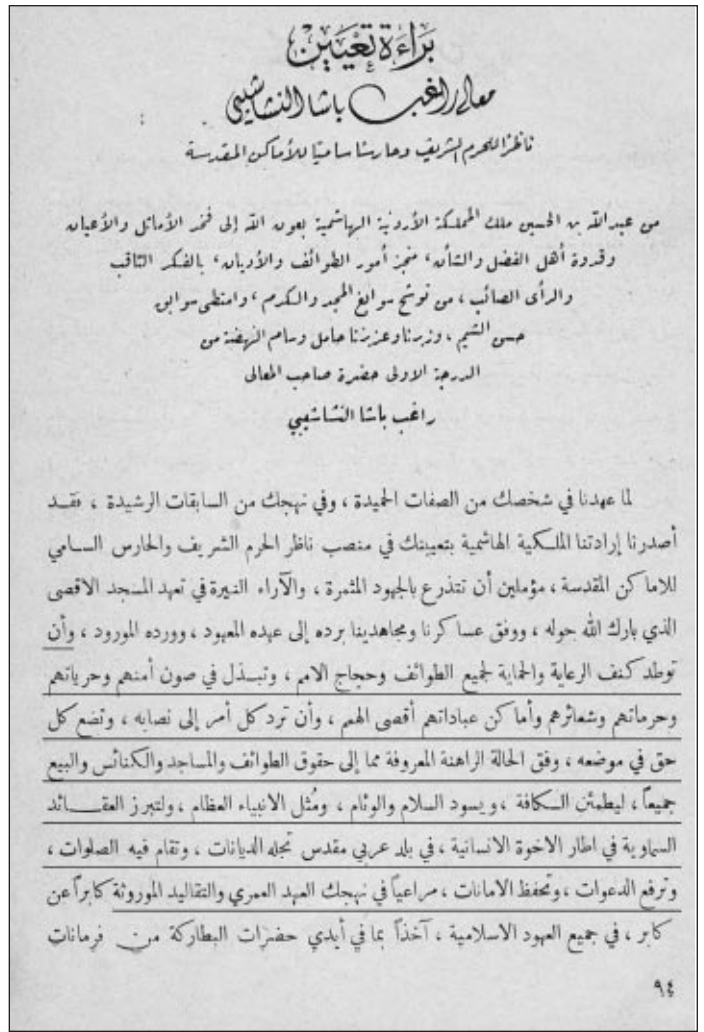 براءة تعيين
معالي راغب باشا النشاشيبي
ناظرًا للحرم الشريف وحارسًا ساميًا للأماكن المقدسة
من عبد الله بن الحسين ملك المملكة الأردنية الهاشمية بعون الله إلى فخر الأماثل والأعيان
وقدوة أهل الفضل والشأن، منجز أمور الطوائف والأديان، بالفكر الثاقب
والرأى الصائب، من توشح سوابغ المجد والكرم، وامتطى سوابق
حسن الشيم، وزيرنا وعزيزنا حامل وسام النهضة من
الدرجة الاولى حضرة صاحب المعالى
راغب باشا النشاشيبي
لما عهدنا في شخصك من الصفات الحميدة ، وفي نهجك من السابقات الرشيدة ، فقد
أصدرنا إرادتنا الملكية الهاشمية بتعيينك في منصب ناظر الحرم الشريف والحارس السامي
للاماكن المقدسة ، مؤملين أن تتذرع بالجهود المثمرة ، والآراء النيرة في تعهد المسجد الاقصى
الذي بارك الله حوله ، ووفق عساكرنا ومجاهدينا برده إلى عهده المعهود ، وورده المورود ، وأن
توطد كنف الرعاية والحماية لجميع الطوائف وحجاج الامم ، وتبذل في صون أمنهم وحرياتهم
وحرماتهم وشعائرهم وأماكن عباداتهم أقصى الهمم ، وأن ترد كل أمر إلى نصابه ، وتضع كل
حق في موضعه ، وفق الحالة الراهنة المعروفة مما إلى حقوق الطوائف والمساجد والكنائس والبيع
جميعاً ، ليطمئن الكافة ، ويسود السلام والوئام ، ومُثل الانبياء العظام ، ولتبرز العقائد
السماوية في اطار الاخوة الانسانية ، في بلد عربي مقدس تجله الديانات ، وتقام فيه الصلوات ،
وترفع الدعوات ، وتحفظ الامانات ، مراعياً في نهجك العهد العمري والتقاليد الموروثة كابراً عن
كابر ، في جميع العهود الاسلامية ، آخذاً بما في أيدي حضرات البطاركة من فرمانات
٩٤